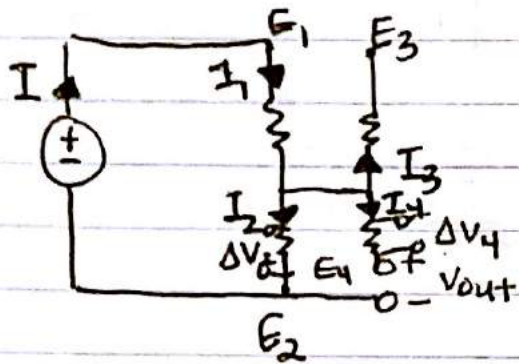 E1 E3
I I1
+
-
I3
I2 I4
ΔV2 E4 ΔV4
+
- Vout
E2